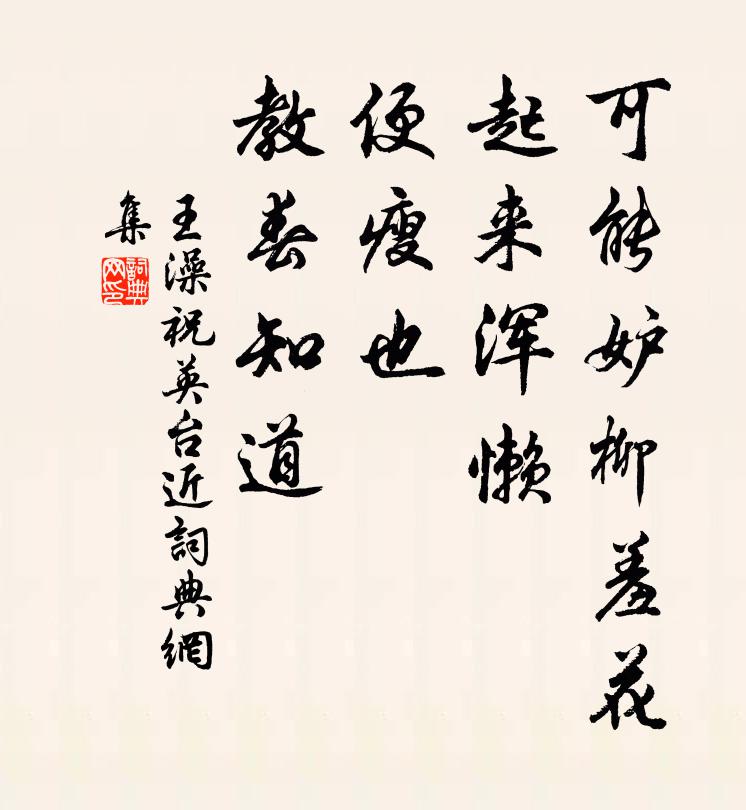 可能妒柳羞花
起来浑懒
便瘦也
教春知道
王澡祝英台近詞典網
集
詞典
网印